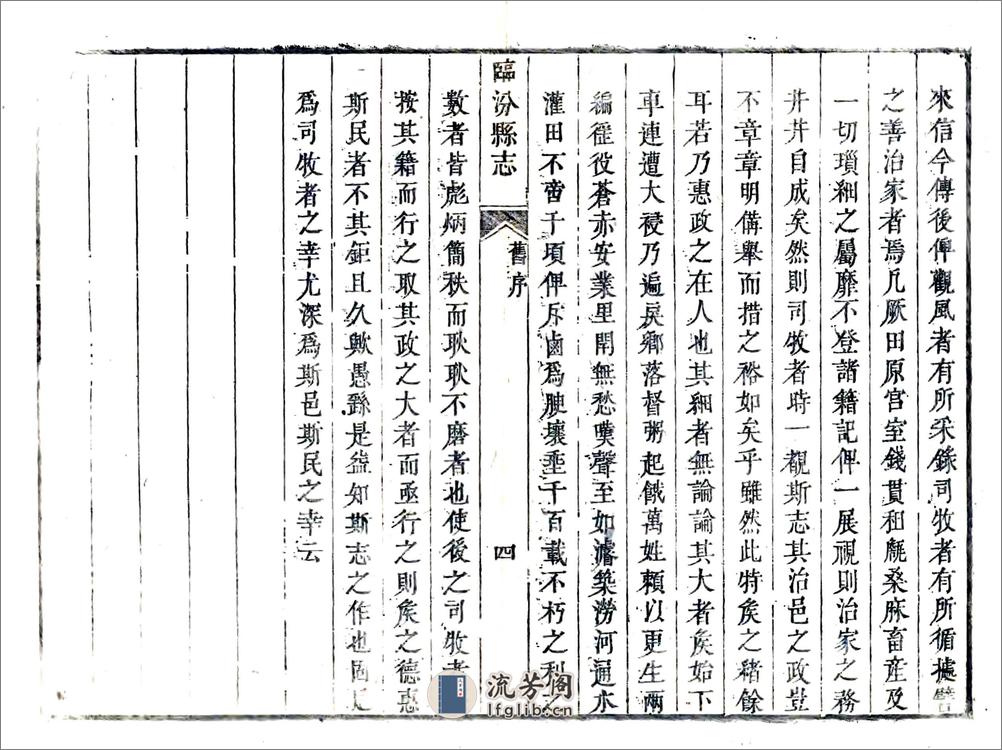 來信今傳後俾觀風者有所采錄司牧者有所循據譬
之善治家者焉凡厥田原宫室錢貫租龎桑麻畜產及
一切瑣細之屬靡不登諸籍記俾一展視則治家之務
井井自成矣然則司牧者時一覩斯志其治邑之政豈
不章章明備舉而措之裕如矣乎雖然此特矦之緒餘
耳若乃惠政之在人也其細者無論論其大者矦始下
車連遭大祲乃遍戾鄉落督粥起餓萬姓賴以更生兩
編徭役蒼赤安業里閈無愁嘆聲至如濬築澇河通水
灌田不啻千頃俾斥鹵爲腴壤垂千百載不朽之利之
臨汾縣志
舊序
四
數者皆彪炳簡秩而耿耿不磨者也使後之司牧者
按其籍而行之取其政之大者而亟行之則矦之德惠
斯民者不其鉅且久歟愚繇是益知斯志之作也固
爲司牧者之幸尤深爲斯邑斯民之幸云
流芳阁
lfglib.cn